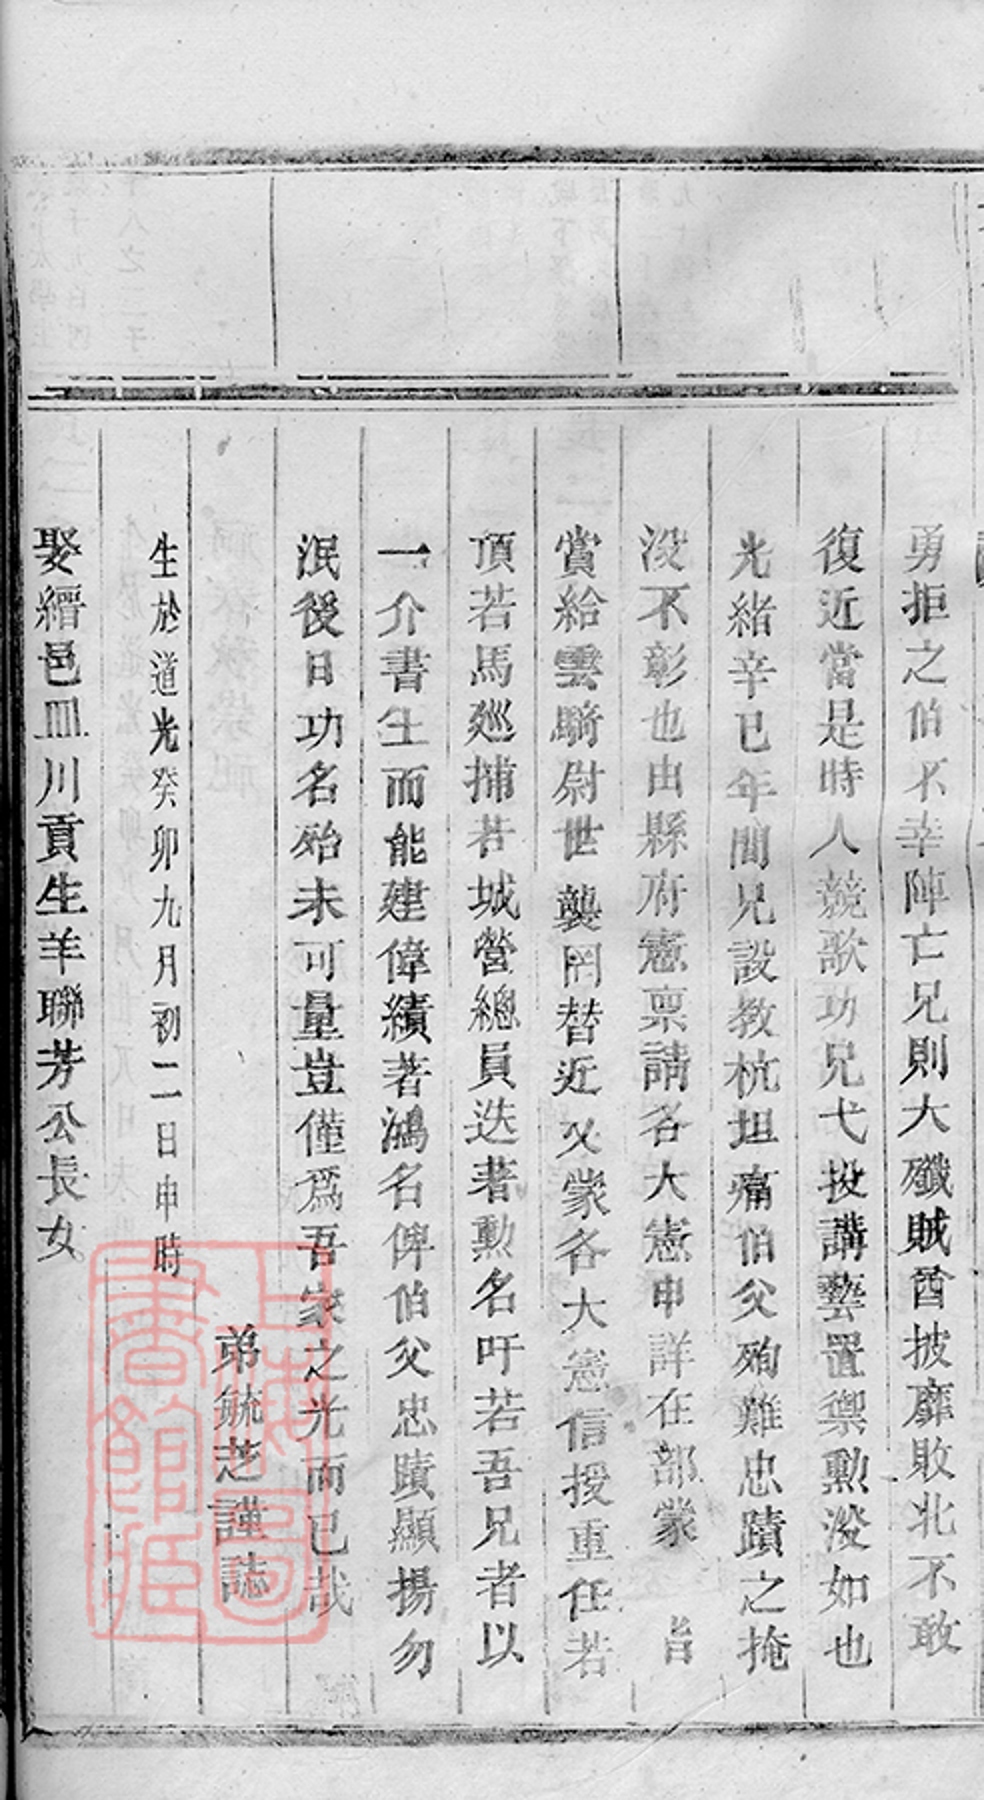 勇拒之伯不幸陣亡兄則大殲賊酋披靡敗北不敢
復近當是時人競歌功兄弋投講藝置禦勲沒如也
光緒辛巳年間兄設教杭坦痛伯父殉難忠蹟之掩
沒不彰也由縣府憲禀請各大憲申詳在部蒙 旨
賞給雲騎尉世襲罔替近又蒙各大憲信授重任若
頂若馬廵捕若城營總員迭著勲名吁若吾兄者以
一介書生而能建偉績著鴻名俾伯父忠蹟顯揚勿
泯後日功名殆未可量豈僅爲吾家之光而已哉
弟毓芝謹誌
生於道光癸卯九月初二日申時
娶縉邑皿川貢生羊聯芳公長女
上海圖書館藏